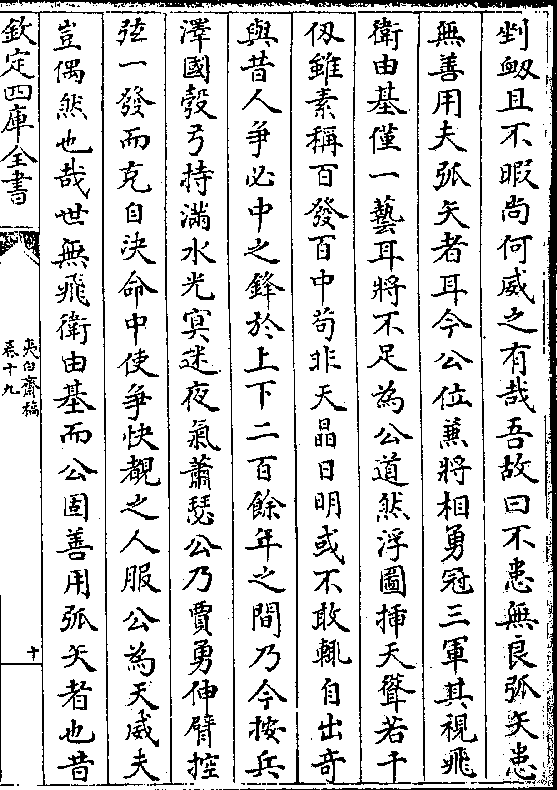 剉衂且不暇尚何威之有哉吾故曰不患無良弧矢患
無善用夫弧矢者耳今公位蕪將相勇冠三軍其視飛
衛由基僅一藝耳將不足為公道然浮圖揷天聳若干
仭雖素稱百發百中苟非天晶日明或不敢輒自出竒
與昔人爭必中之鋒於上下二百餘年之間乃今按兵
澤國彀弓持滿水光冥迷夜氣蕭瑟公乃賈勇伸臂控
弦一發而克自決命中使爭快覩之人服公為天威夫
豈偶然也哉世無飛衛由基而公固善用弧矢者也昔
欽定四庫全書
夷白齋稿
卷十九
十